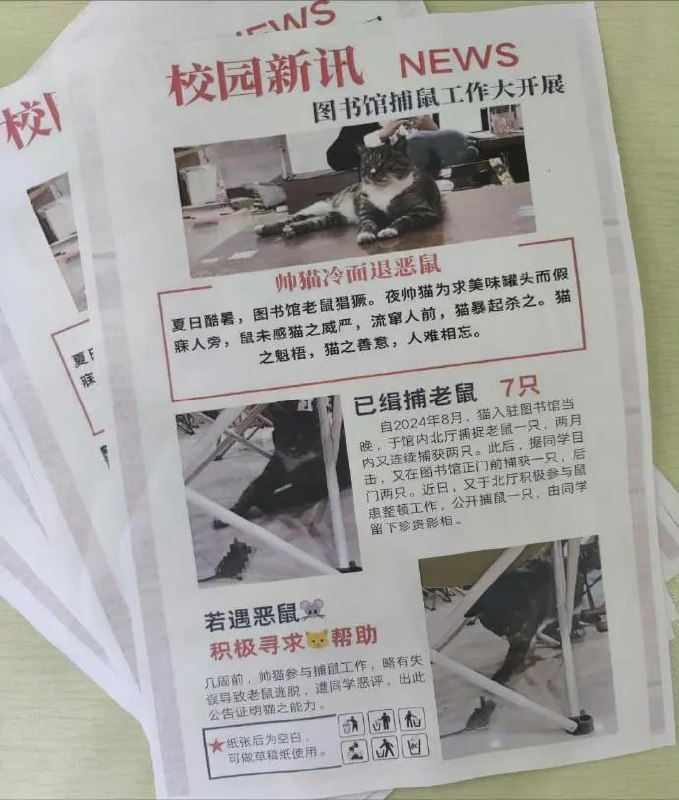 校园新讯 NEWS
图书馆捕鼠工作大开展
帅猫冷面退恶鼠
夏日酷暑，图书馆老鼠猖獗。夜帅猫为求美味罐头而假
寐人旁，鼠未感猫之威严，流窜人前，猫暴起杀之。猫
之魁梧，猫之善意，人难相忘。
已缉捕老鼠 7只
自2024年8月，猫入驻图书馆当
晚，于馆内北厅捕捉老鼠一只，两月
内又连续捕获两只。此后，据同学目
击，又在图书馆正门前捕获一只，后
门两只。近日，又于北厅积极参与鼠
患整顿工作，公开捕鼠一只，由同学
留下珍贵影相。
若遇恶鼠🐭
积极寻求🐱帮助
几周前，帅猫参与捕鼠工作，略有失
误导致老鼠逃脱，遭同学恶评，出此
公告证明猫之能力。
★纸张后为空白，
可做草稿纸使用。
NEWS
校
夏日
寐